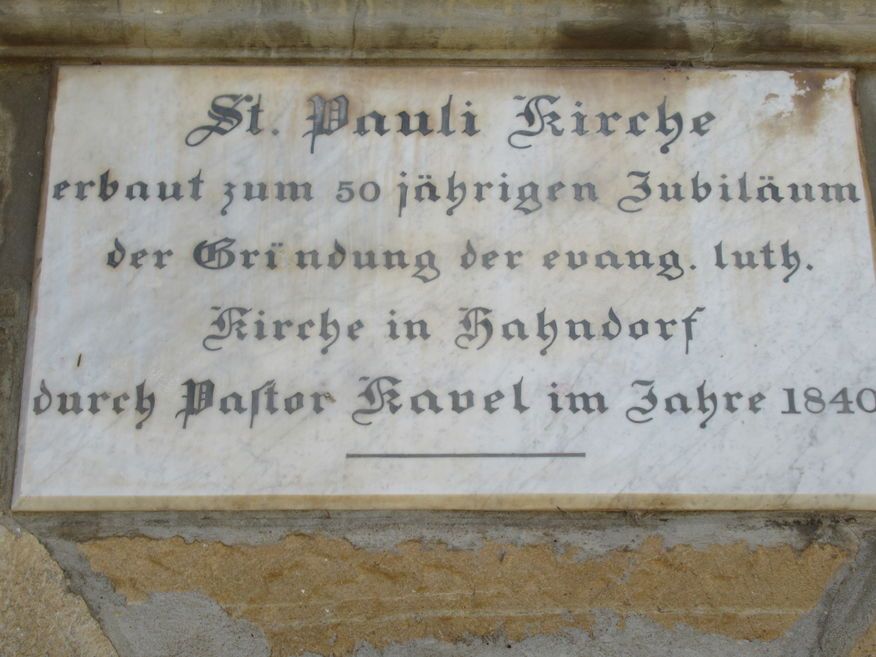 St. Pauli Kirche
erbaut zum 50 jährigen Jubiläum
der Gründung der evang. luth.
Kirche in Hahndorf
durch Pastor Kavel im Jahre 1840